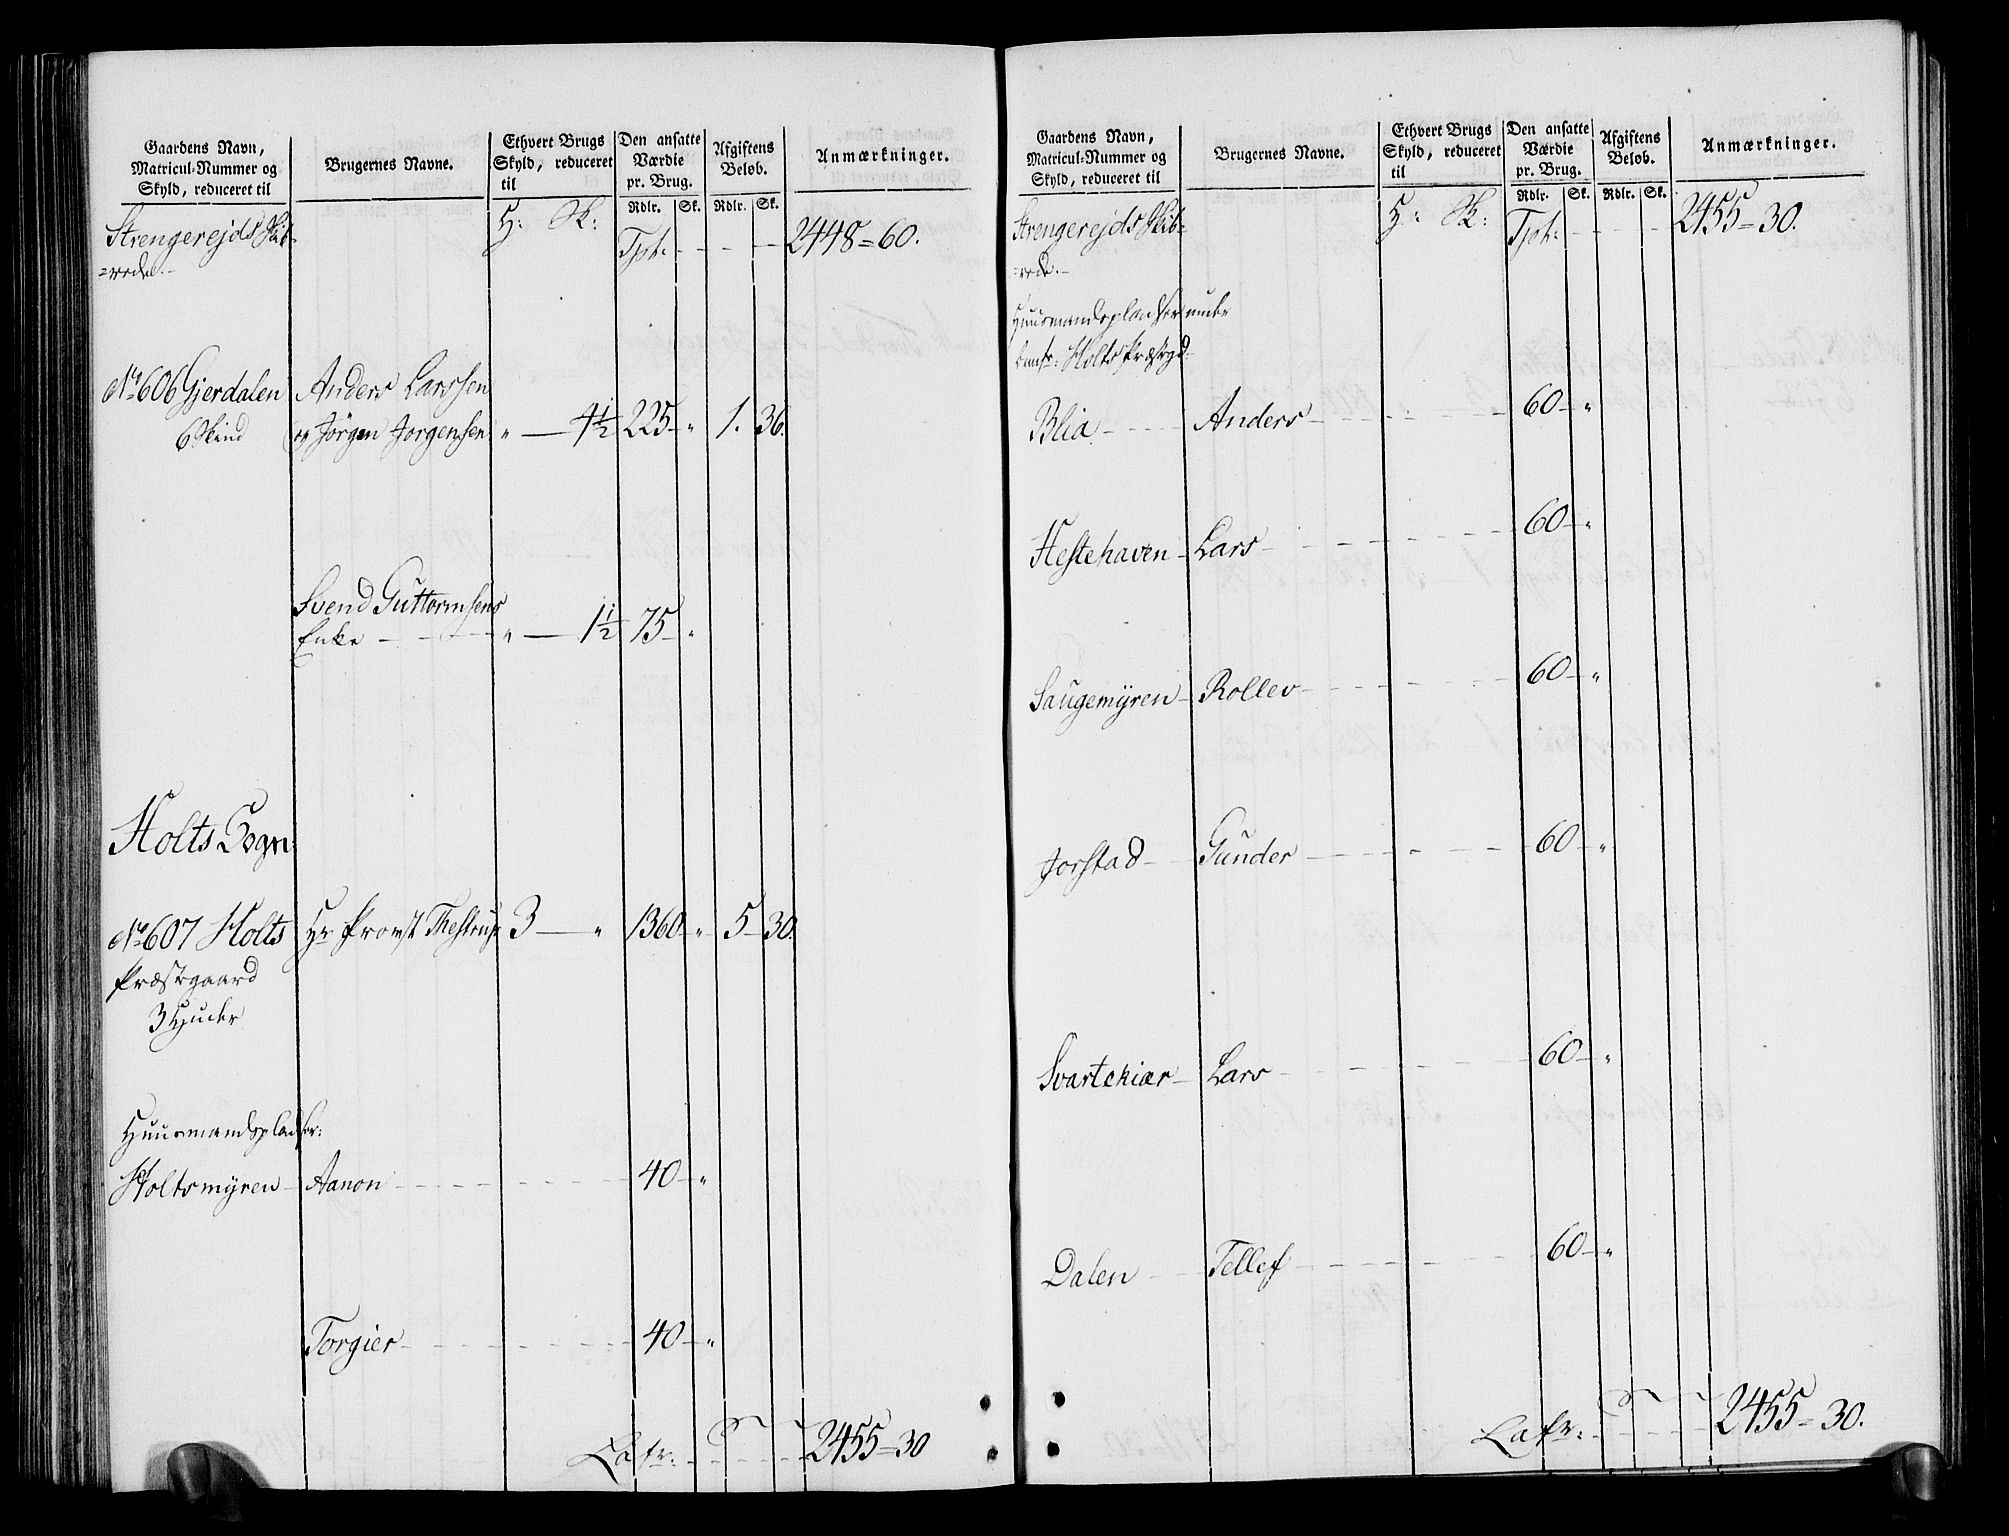 Gaardens Navn,
Matricul-Nummer og
Skyld, reduceret til
Brugernes Navne.
Ethvert Brugs
Skyld, reduceret
til
Den ansatte
Værdie
pr. Brug.
Afgiftens
Beløb.
Anmærkninger.
Rdlr. Sk. Rdlr. Sk.
Strengerejds Skib-
=rede.-
H: Sk:
Tpt: - - - 2448=60.
No 606 Gjerdalen Anders Larssen
6 Skind og Jörgen Jorgensen „ — 4½ 225-„ 1. 36.
Svend Guttormsens
Enke - - - - „ — 1½ 75-„
Holts Sogn
No 607 Holts Hr Provst Thestrup 3 — „ 1360-„ 5-30.
Præstegaard
3 Huder
Huusmandspladser:
Holtsmyren - Aanon - - - - 40-„
Torgier - - - - 40-„
Latr: - - - 2455=30
Gaardens Navn,
Matricul-Nummer og
Skyld, reduceret til
Brugernes Navne.
Ethvert Brugs
Skyld, reduceret
til
Den ansatte
Værdie
pr. Brug.
Afgiftens
Beløb.
Anmærkninger.
Rdlr. Sk. Rdlr. Sk.
Strengerejds Skib=
=rede.-
H: Sk:
Tpt: - - - 2455=30.
Huusmandspladser under
Holts Præstgd:
Blia - - - Anders - - - - 60-„
Hestehaven - Lars - - - - 60-„
Saugemyren - Rollev - - - - 60-„
Jorstad - Gunder - - - - 60-„
Svartekiær - Lars - - - - 60-„
Dalen - Tellef - - - - 60-„
Latr: - - - 2455=30.